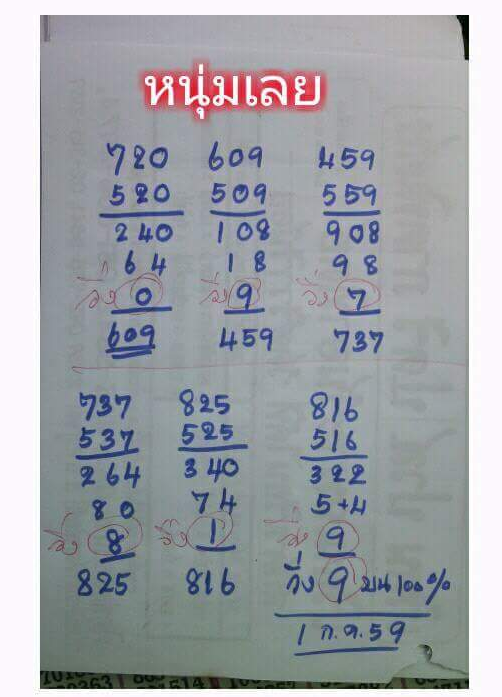 หนุ่มเลย
720 609 459
520 509 559
240 108 908
64 18 98
วิ่ง 0 วิ่ง 9 วิ่ง 7
609 459 737
737 825 816
537 525 516
264 340 322
80 74 5+4
วิ่ง 8 วิ่ง 1 วิ่ง 9
825 816 วิ่ง 9 บน 100%
1 ก.ค.59